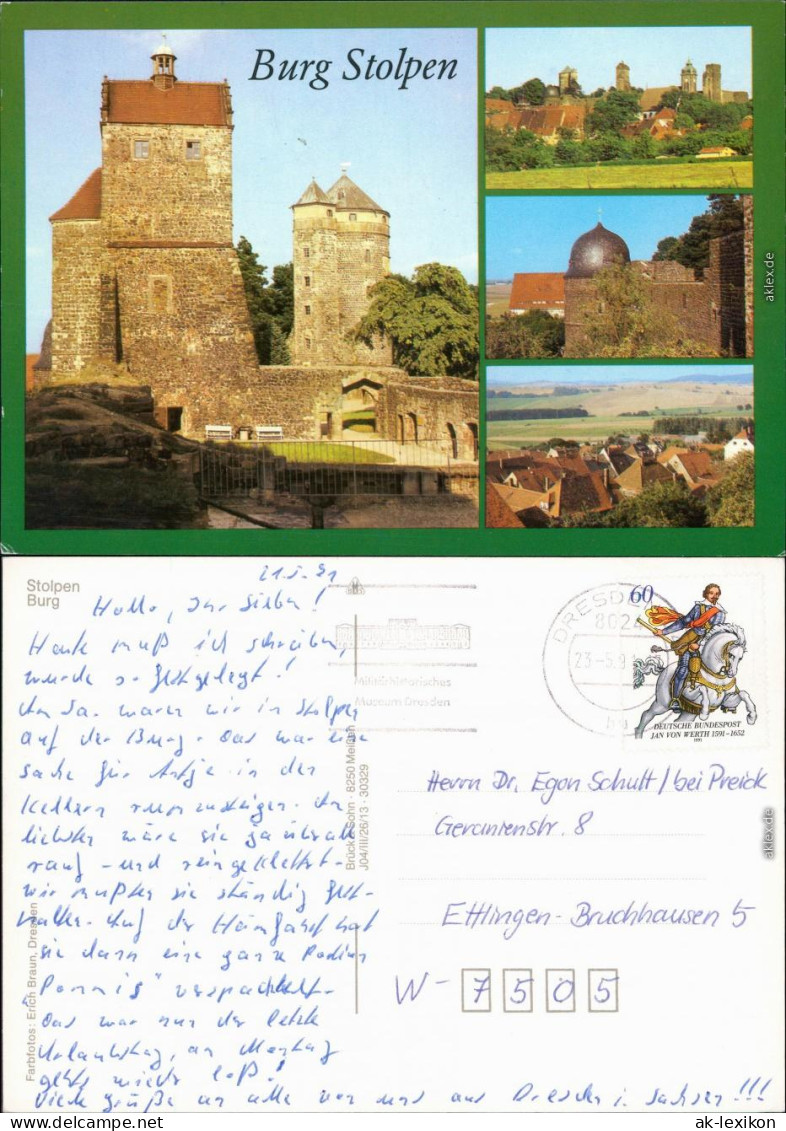 Burg Stolpen
aklex.de
Stolpen
Burg
21.5.91
Hallo, Ihr Lieben!
Heute muß ich schreiben,
wurde so festgelegt!
Am Sa. waren wir in Stolpen
auf der Burg. Das war eine
Sache für Antje in den
Kellern rumzusteigen. Am
liebsten wäre sie ja überall
rauf- und reingeklettert-
wir mußten sie ständig fest-
halten. Auf der Heimfahrt hat
sie dann eine ganze Portion
"Pommis" verspachtelt.
Das war nun der letzte
Urlaubstag, am Montag
geht's wieder loß!
Viele Grüße an alle von uns aus Dresden i. Sachsen!!!
Farbfotos: Erich Braun, Dresden
Brück & Sohn · 8250 Meißen
J04/III/26/13 · 30329
Militärhistorisches
Museum Dresden
DRESDEN
802
23-5.9
60
DEUTSCHE BUNDESPOST
JAN VON WERTH 1591-1652
1991
Herrn Dr. Egon Schult/bei Preick
Geranienstr. 8
Ettlingen-Bruchhausen 5
W-7505
aklex.de
ak-lexikon